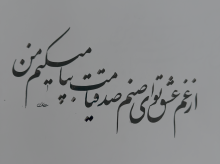 از غم عشق تو ای صنم صد قیامت بپا میکنم من